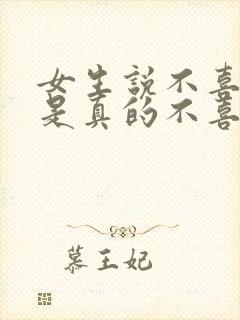 女生说不喜
是真的不喜
慕王妃